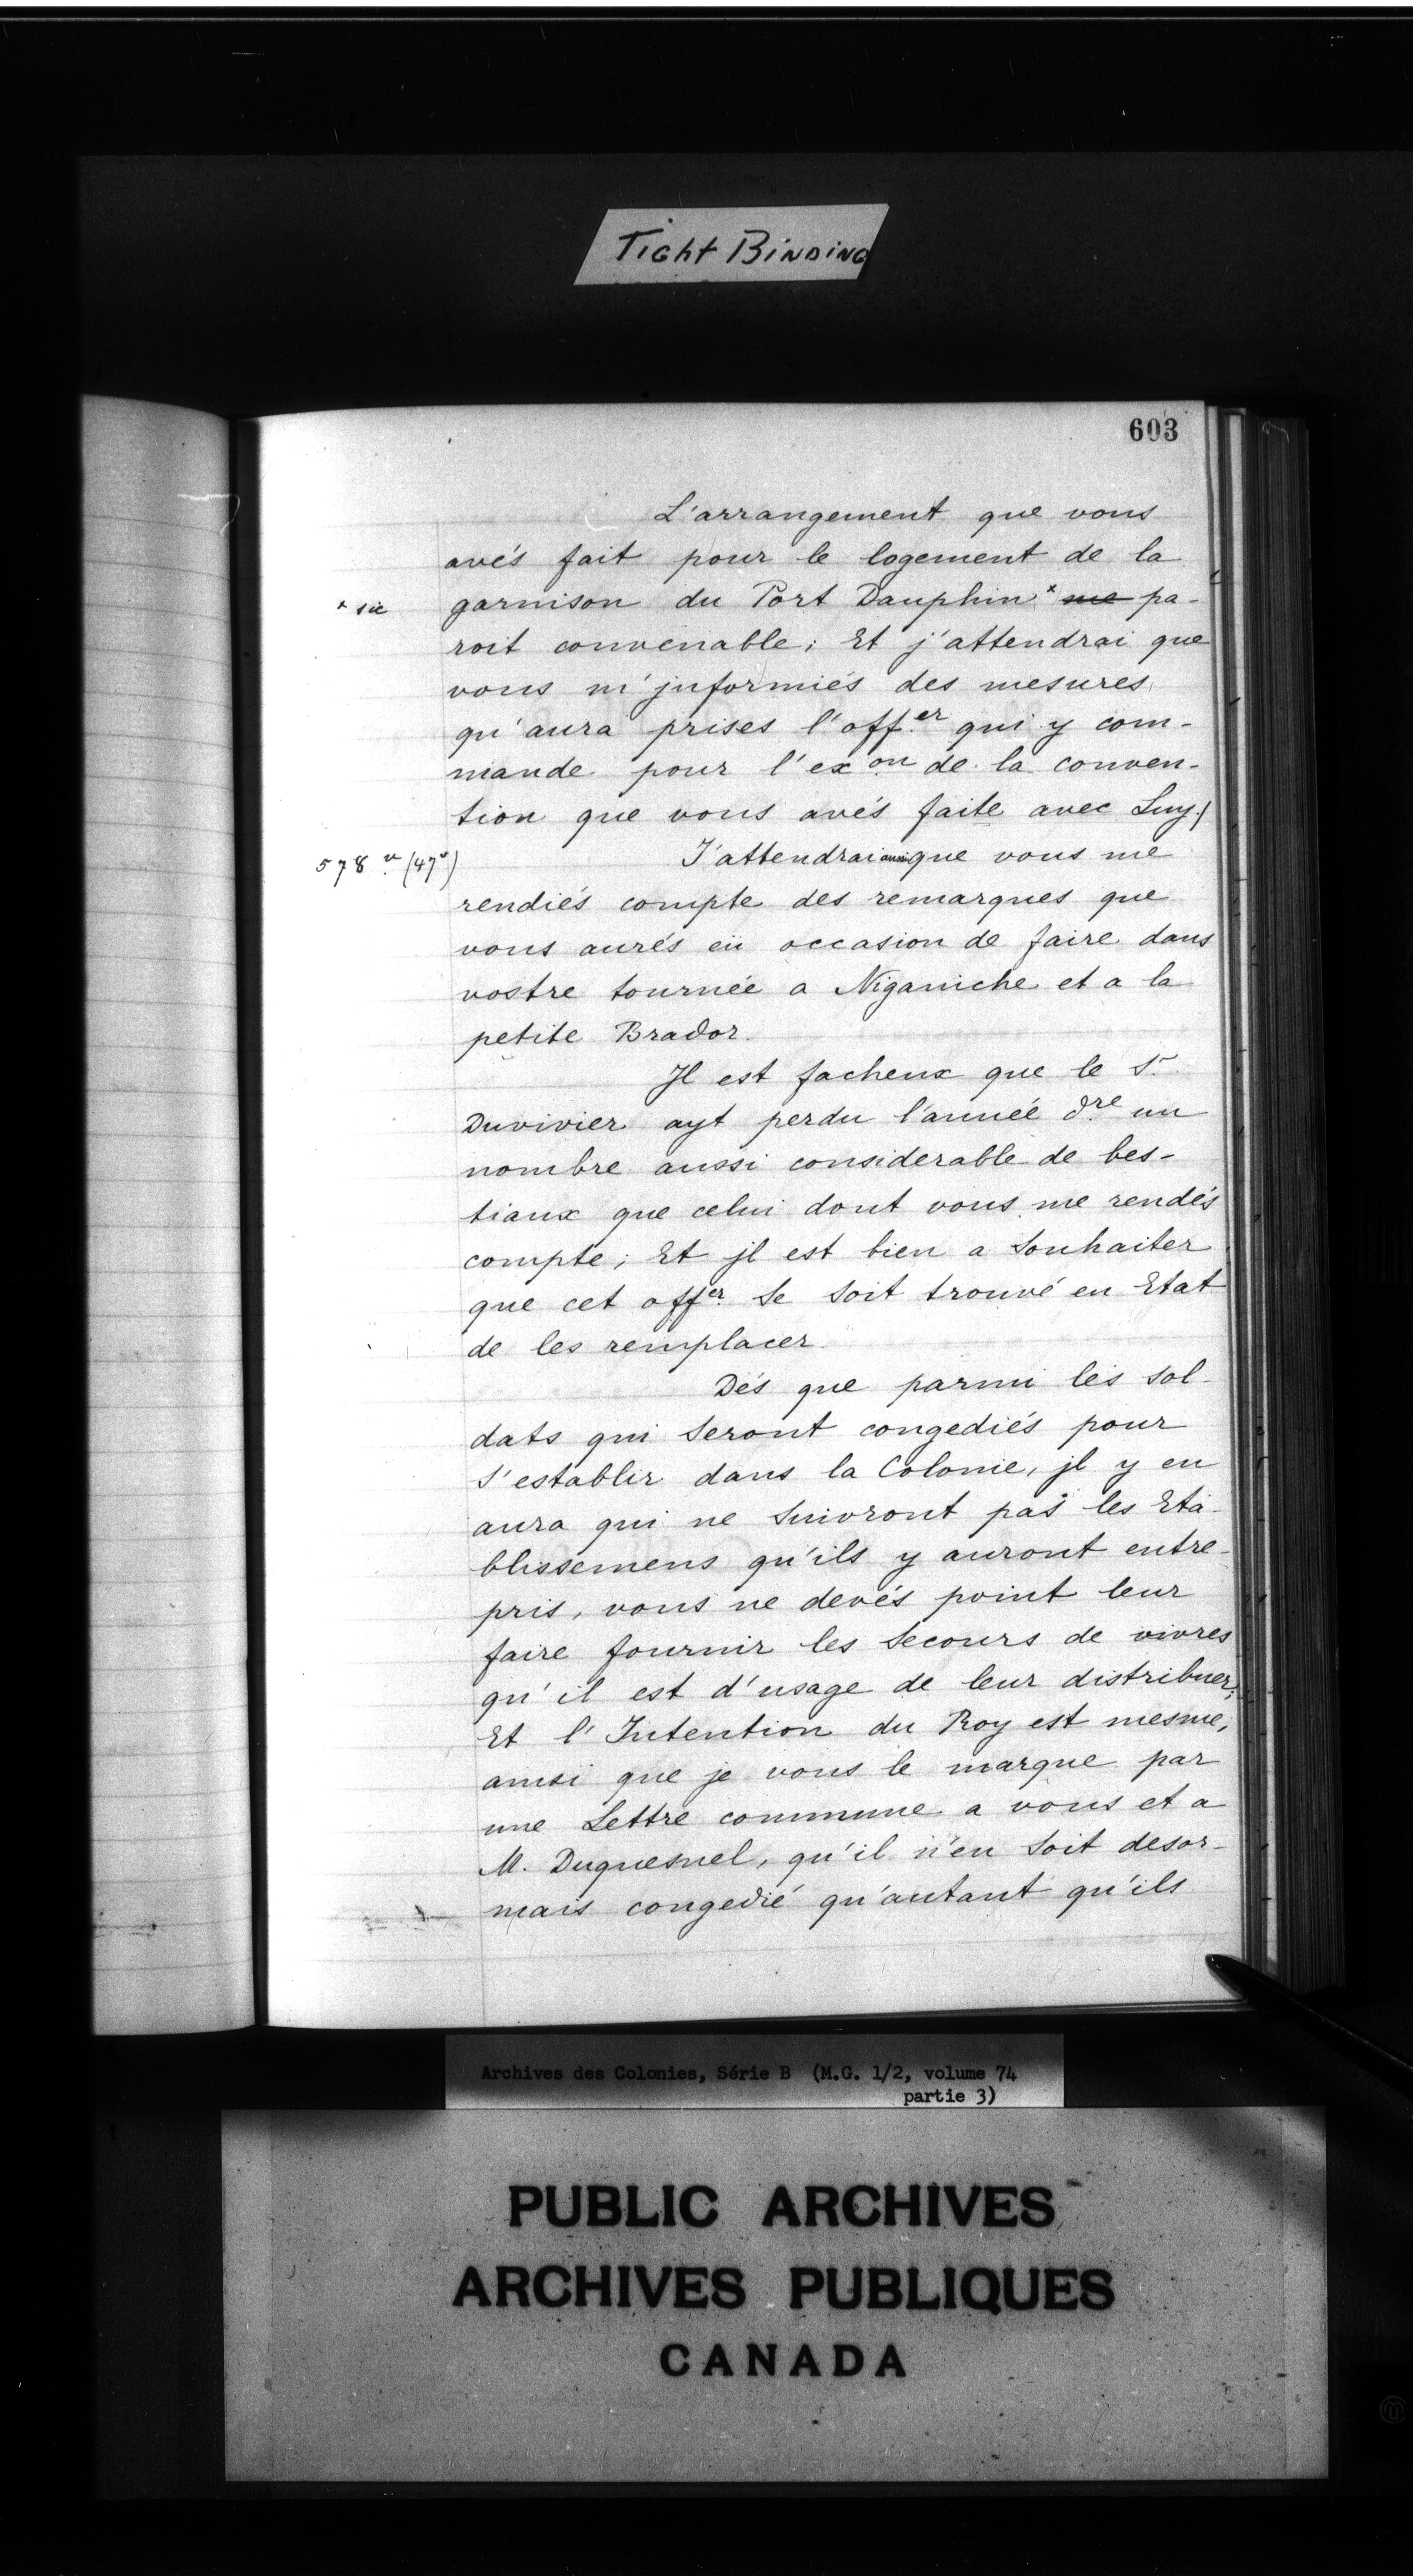 Tight Binding
603
L'arrangement que vous
avés fait pour le logement de la
* sic
garnison du Port Dauphin * me pa-
roit convenable; Et j'attendrai que
vous m'jnformiés des mesures
qu'aura prises l'off.er qui y com-
mande pour l'ex.on de la conven-
tion que vous avés faite avec Luy /
578 v.(47v)
J'attendrai aussi que vous me
rendiés compte des remarques que
vous aurés eü occasion de faire dans
vostre tournée a Niganiche et a la
petite Brador.
Jl est facheux que le S.r
Duvivier ayt perdu l'année d.re un
nombre aussi considerable de bes-
tiaux que celui dont vous me rendés
compte; Et jl est bien a Souhaiter
que cet off.er Se Soit trouvé en Etat
de les remplacer.
Dés que parmi les Sol-
dats qui Seront congediés pour
S'establir dans la Colonie, jl y en
aura qui ne Suivront pas les Eta-
blissemens qu'ils y auront entre-
pris, vous ne devés point leur
faire fournir les Secours de vivres
qu'il est d'usage de leur distribuer;
Et l'Intention du Roy est mesme,
ainsi que je vous le marque par
une Lettre commune a vous et a
M. Duquesnel, qu'il n'en Soit desor-
mais congedié qu'autant qu'ils
Archives des Colonies, Série B (M.G. 1/2, volume 74
partie 3)
PUBLIC ARCHIVES
ARCHIVES PUBLIQUES
CANADA